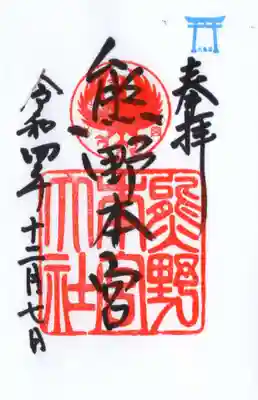 奉拝
熊野本宮
令和四年十二月七日
熊野本宮大社